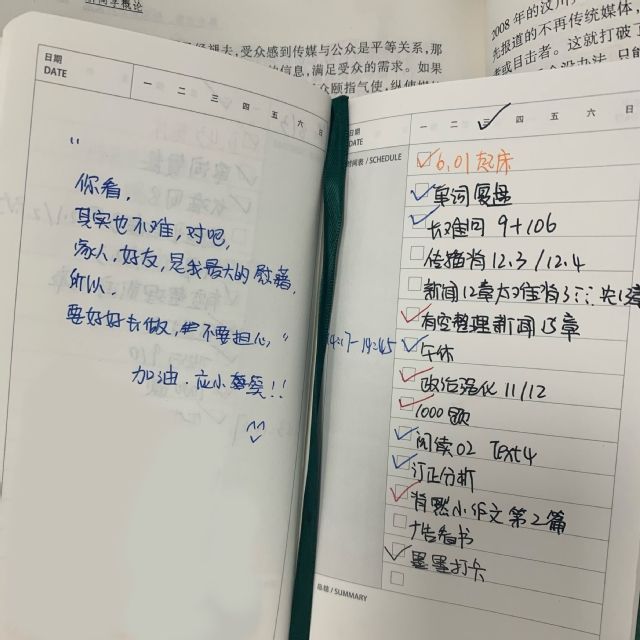 日期
DATE
一 二 三 四 五 六 日
“
你看,
其实也不难,对吧,
家人,好友,是我最大的慰藉,
所以,
要好好去做,不要担心,”
加油.应小
日期
DATE
一 二 三 四 五 六 日
时间表 / SCHEDULE
6.01起床
单词复盘
长难句 9+106
12.3 / 12.4
新闻12章
有空整理新闻15章
午休
政治强化 11/12
1000题
阅读02 Text4
订正分析
背默小作文第2篇
广告看书
墨墨打卡
总结 / SUMMARY
众感到传媒与公众是平等关系,那
的信息,满足受众的需求。如果
众颐指气使,
2008年的汶川
先报道的不再传统媒体,
者或目击者。这就打破了